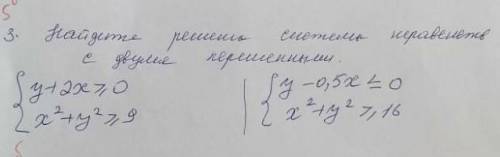 3. Найдите решены системы неравенств
с двумя переменными.
{ y+2x ≥ 0 | { y-0,5x ≤ 0
x²+y² ≥ 9 x²+y² ≥ 16